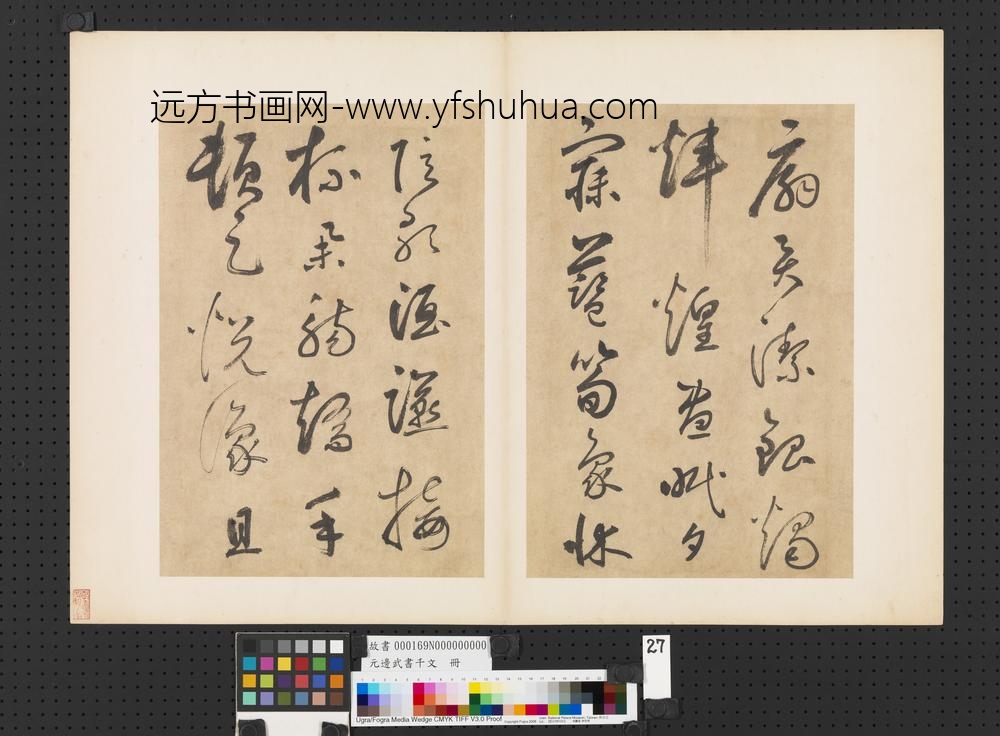 远方书画网-www.yfshuhua.com
扇員潔銀燭
煒煌晝眠夕
寐藍筍象床
弦歌酒讌接
杯舉觴矯手
頓足悅豫且
故書 000169N000000000
元邊武書千文 冊
27
Ugra/Fogra Media Wedge CMYK TIFF V3.0 Proof